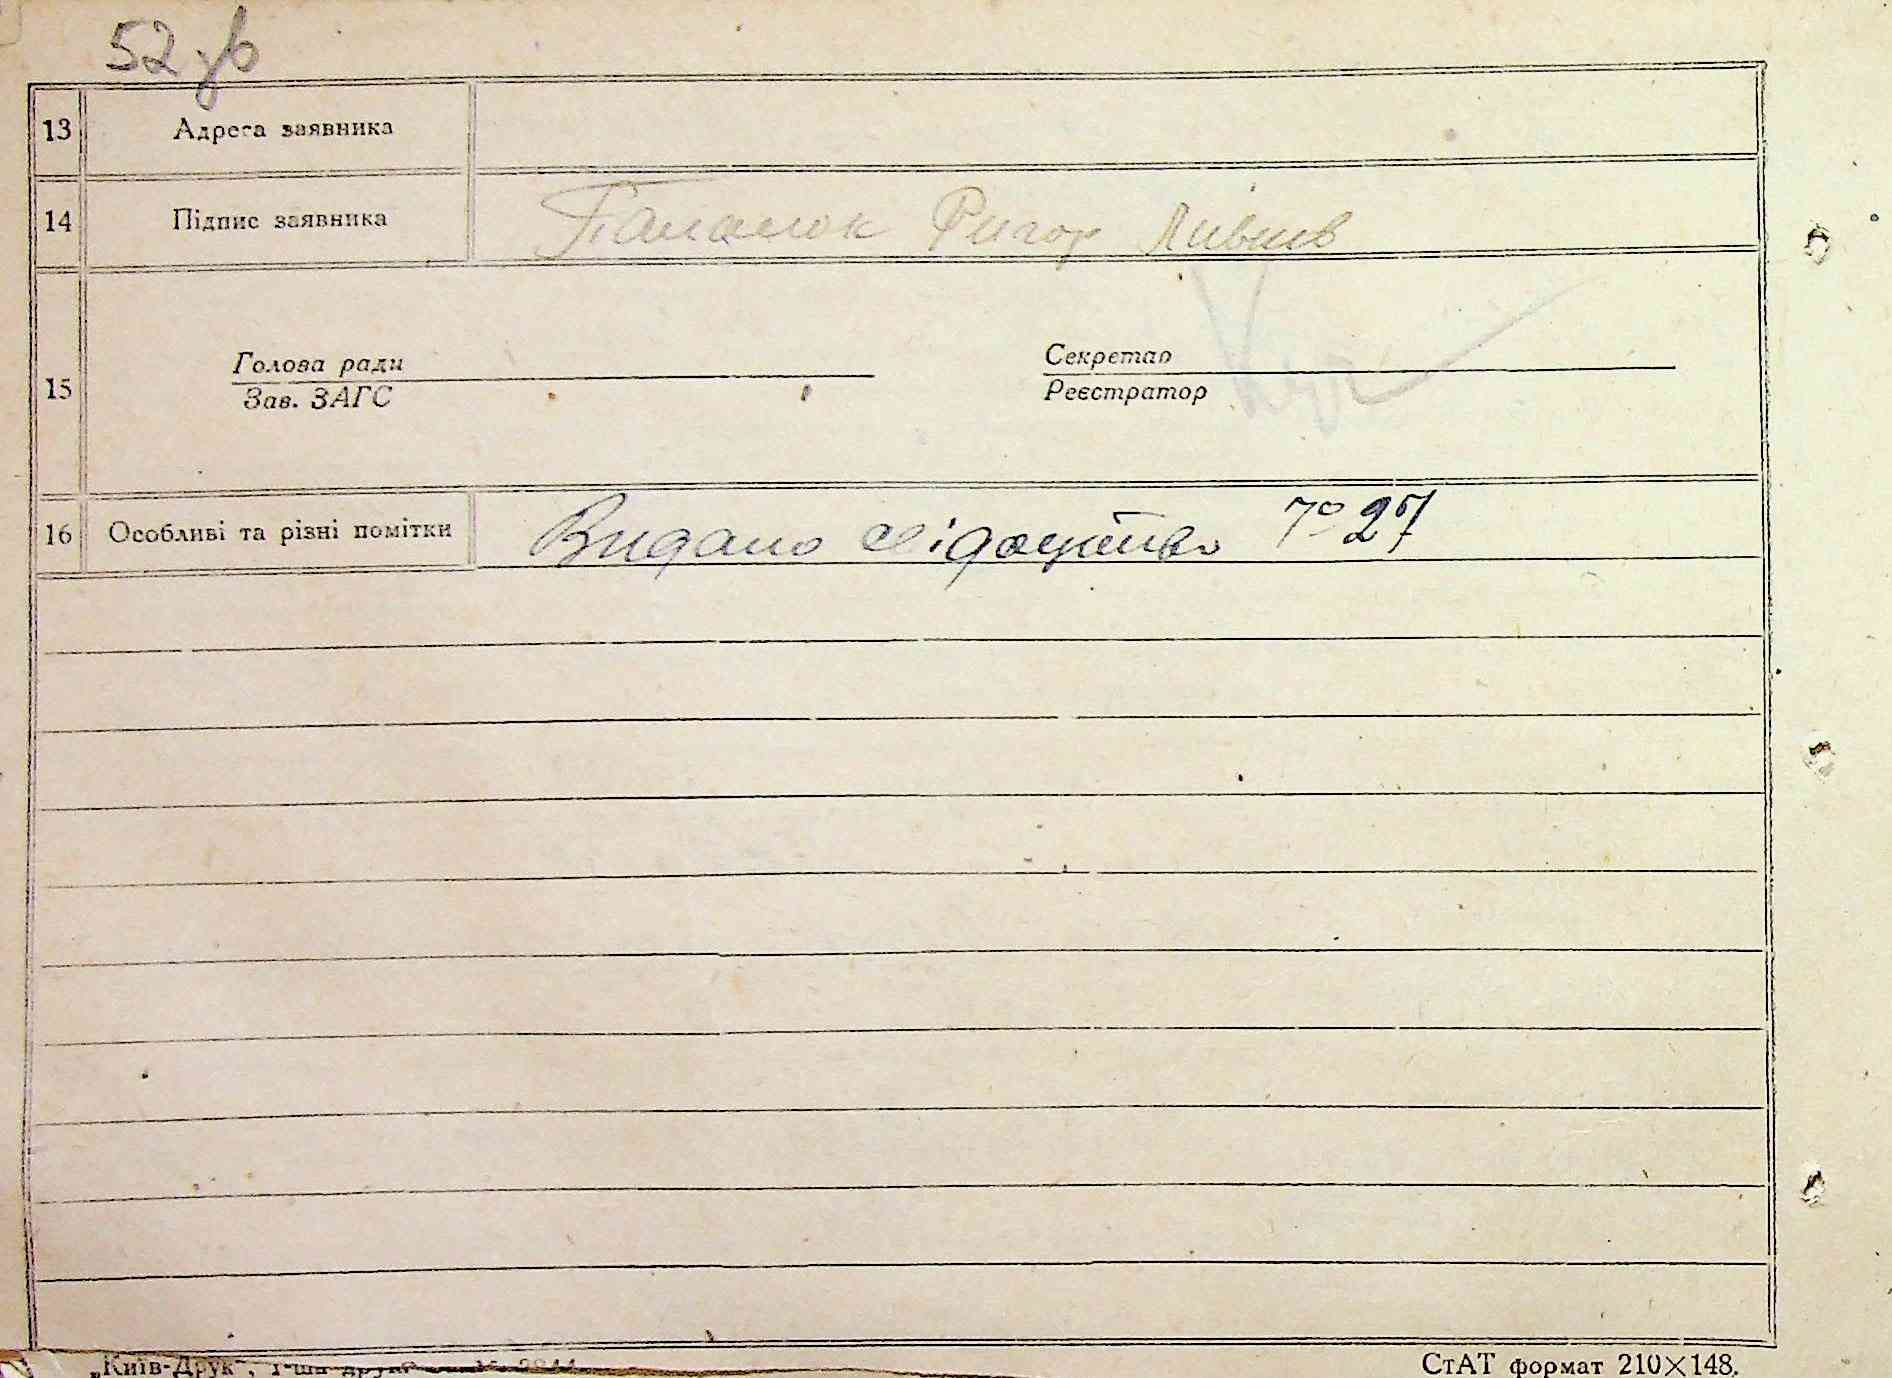 52 зв
13 Адреса заявника
14 Підпис заявника Ригор
15 Голова ради Секретар
Зав. ЗАГС Реєстратор
16 Особливі та різні помітки Видано свідоцтво № 27
„Київ-Друк“, 1-ша друк
СтАТ формат 210×148.